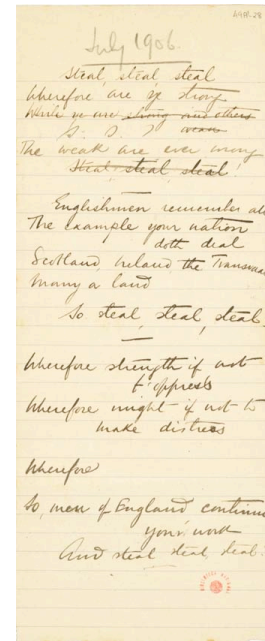 July 1906.
Steal, steal steal
Wherefore are ye strong
While ye are strong and others
S. S. S weak
The weak are ever wrong
Steal, steal steal!
Englishmen remember al
The example your nation
doth deal
Scotland, Ireland, the Transvaa
Many a land
So steal, steal, steal.
Wherefore strength if not
t' oppress
Wherefore might if not to
make distress
Wherefore
So, men of England continu
your work
And steal steal, steal.